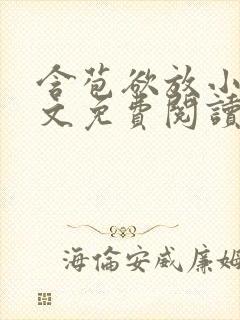 含苞欲放小
文免費閱讀
海倫安威廉姆